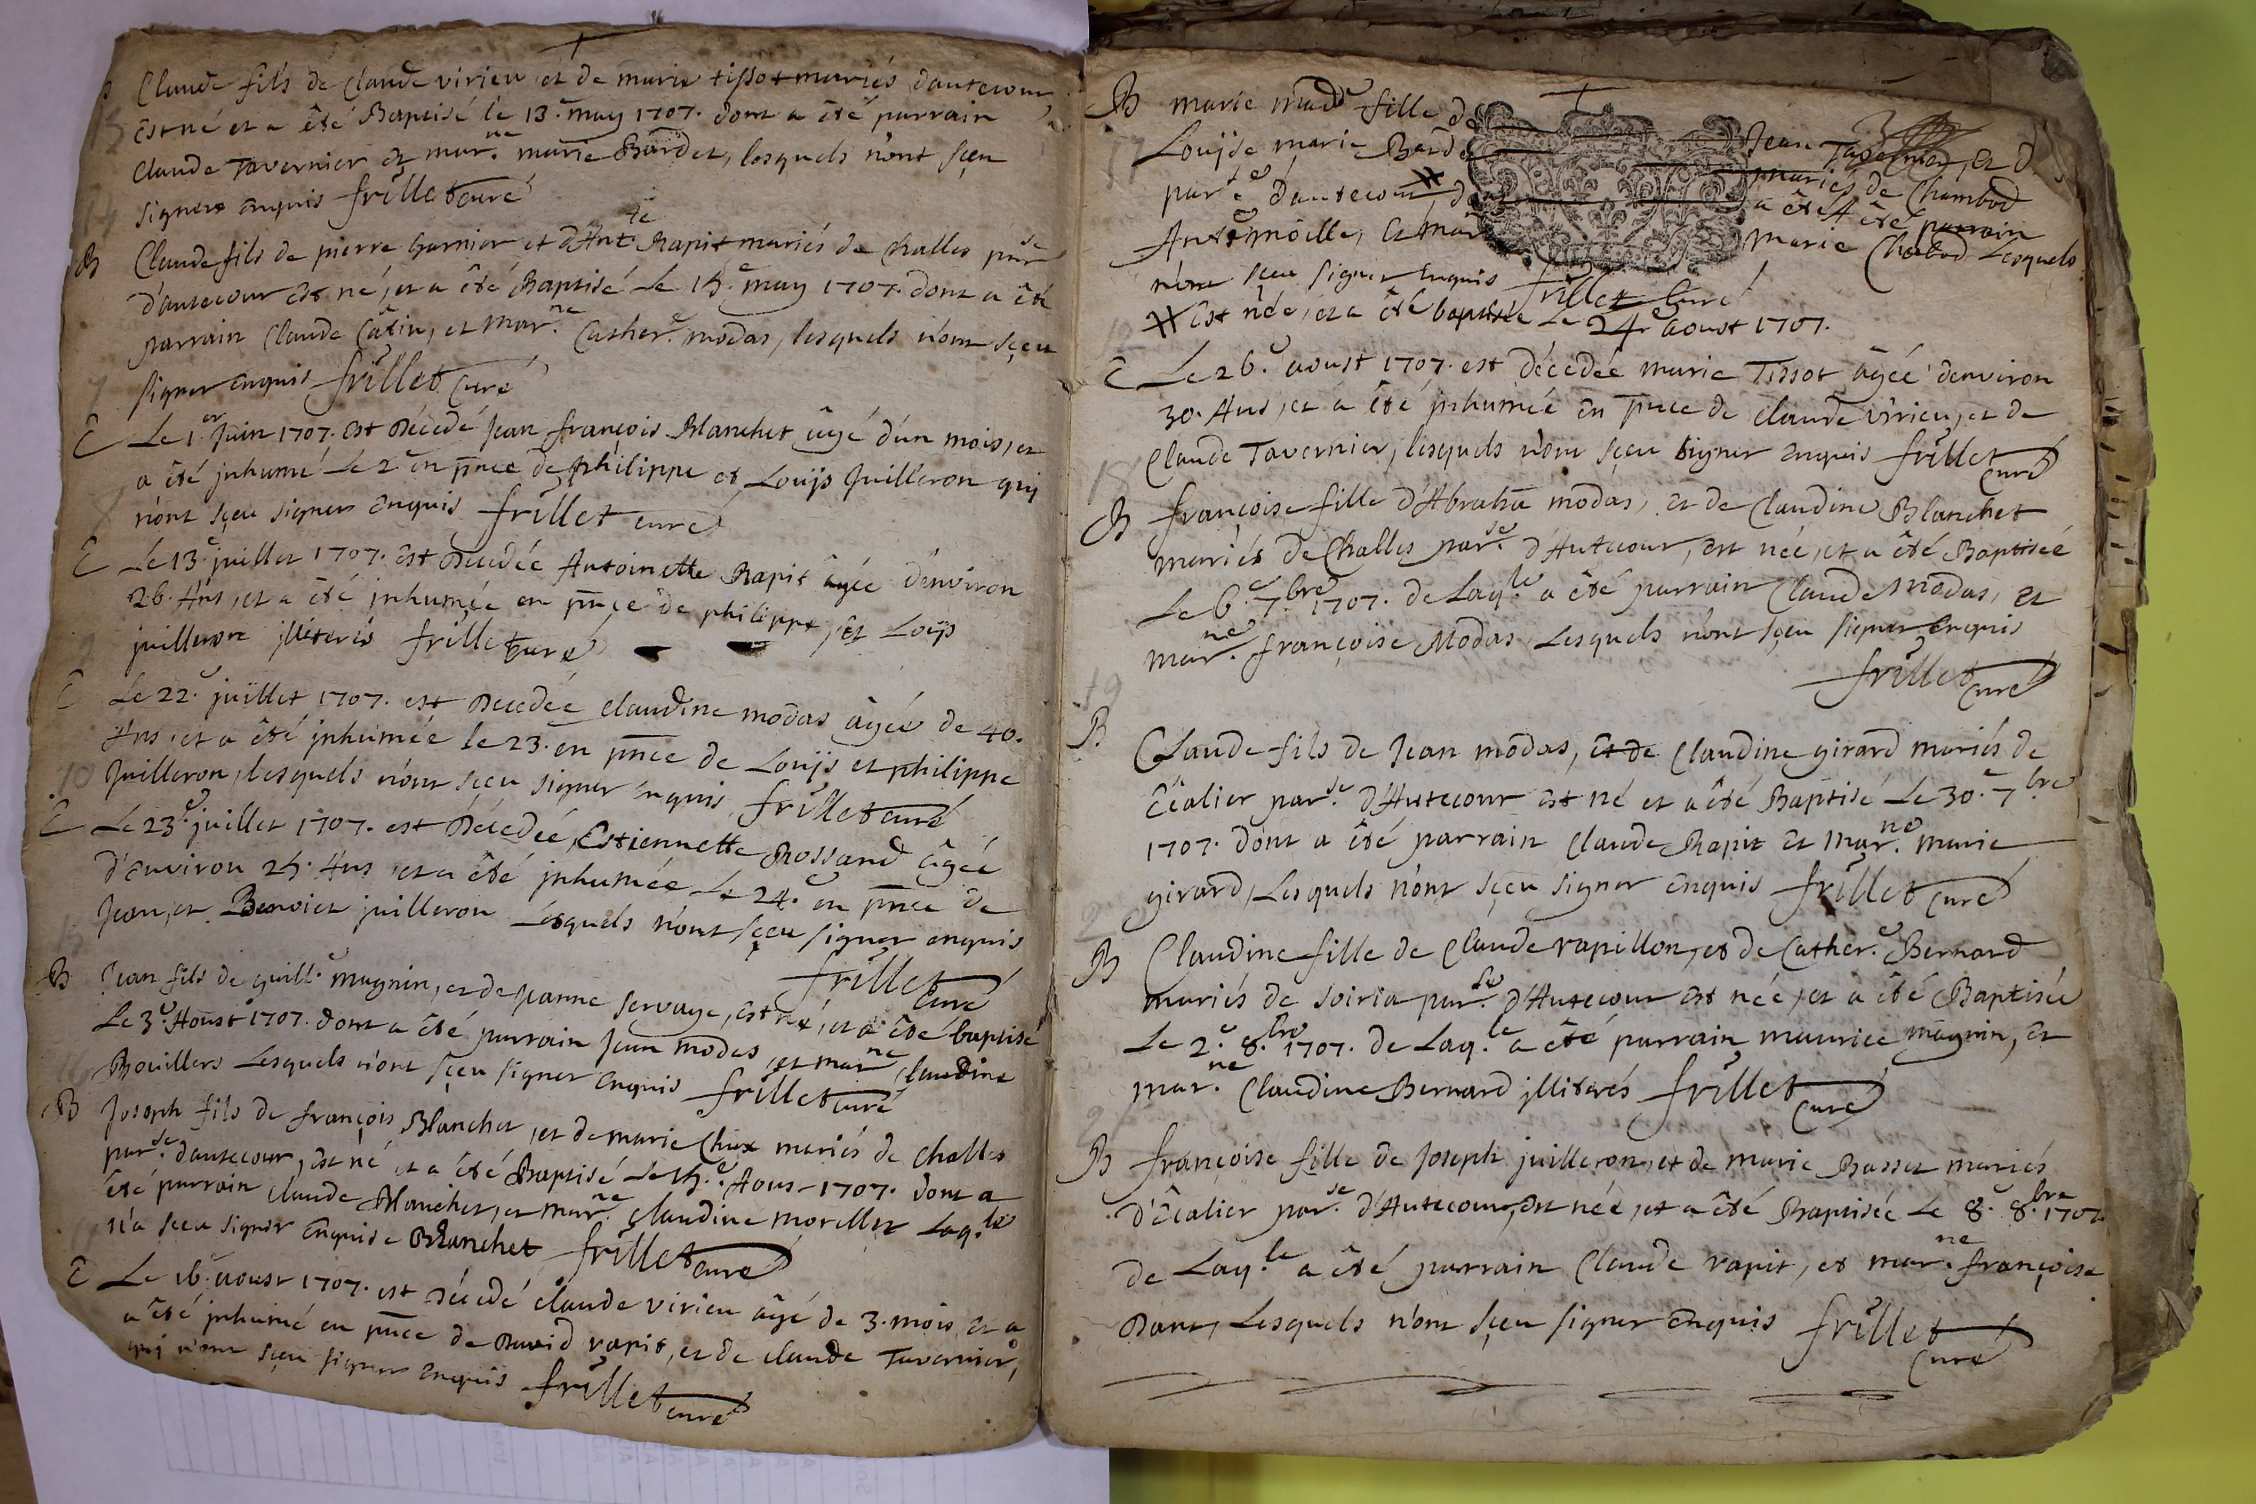 B Claude fils de Claude virieu et de marie tissot mariés dautecour
Est né et a êté Baptisé le 13.e may 1707. dont a êté parrain
Claude Tavernier et mar.ne marie Bardet, lesquels n'ont sçeu
signer enquis frillet curé
B Claude fils de pierre Garnier et d'Ant.te Rapit mariés de Challes par.se
d'autecour est né, et a êté Baptisé Le 15.e may 1707. dont a êté
parrain Claude Catin, et Mar.ne Cather.e modas, lesquels n'ont sçeu
signer enquis frillet Curé
E Le 1.er Juin 1707. est Décedé Jean françois Blanchet âgé d'un mois, et
a êté jnhumé Le 2.e en pnce de philippe et Louijs Juilleron qui
n'ont sçeu signer enquis frillet curé
E Le 13.e juillet 1707. est Décedée Antoinette Rapit âgée d'environ
26. Ans, et a êté jnhumée en pnce de philippe, et Loüijs
juilleron jlliterés frillet curé
E Le 22.e juillet 1707. est Décedée claudine modas âgée de 40.
Ans, et a êté jnhumée le 23. en pnce de Louijs et philippe
Juilleron, lesquels n'ont sçeu signer enquis frillet curé
E Le 23.e juillet 1707. est Décedée, Estiennette Rossand âgée
d'Environ 25. Ans et a êté jnhumée Le 24.e en pnce de
Jean, et Benoict juilleron Lesquels n'ont sçeu signer enquis
frillet Curé
B Jean fils de guill.e magnin, et de Jeanne servage, est né, et a êté baptisé
Le 3.e Aoust 1707. dont a êté parrain Jean modas, et mar.ne Claudine
Bouillers Lesquels n'ont sçeu signer Enquis frillet curé
B Joseph fils de françois Blanchet, et de marie Chux mariés de Challes
par.se dautecour, est né et a êté Baptisé Le 15.e Aoust 1707. dont a
êté parrain claude Blanchet, et mar.ne claudine morellet Laq.le
n'a sçeu signer Enquise Blanchet frillet curé
E Le 16.e aoust 1707. est Décedé claude virieu âgé de 3. mois, et a
a êté jnhumé en pnce de David rapit, et de claude Tavernier,
qui n'ont sçeu signer enquis frillet curé
B marie mad.e fille de Jean Tavernier, et d.
Louijse marie Bardet mariés de Chambod
par.se d'autecour # dont a êté êté parrain
Ant.e möille, Et mar marie Chabod Lesquels
n'ont sçeu signer enquis frillet Curé
# est née, et a êté baptisée Le 24.e aoust 1707.
E Le 26.e aoust 1707. est décedée marie Tissot âgée d'environ
30. Ans, et a êté jnhumée en pnce de claude virieu, et de
Claude Tavernier, lesquels n'ont sçeu signer enquis frillet curé
B françoise fille d'Abrahã modas, et de Claudine Blanchet
mariés de Challes par.se d'Autecour, est née, et a êté Baptisée
Le 6.e 7.bre 1707. de Laq.le a êté parrain Claude modas, et
mar.ne françoise Modas, Lesquels n'ont sçeu signer enquis
frillet curé
B. Claude fils de Jean modas, et de Claudine girard mariés de
Cêalier par.se d'Autecour est né et a êté Baptisé Le 30.e 7.bre
1707. dont a êté parrain Claude Rapit et mar.ne marie
girard, Lesquels n'ont sçeu signer enquis frillet Curé
B Claudine fille de Claude rapillon, et de Cather.e Bernard
mariés de soiria par.se d'Autecour est née, et a êté Baptisée
Le 2.e 8.bre 1707. de Laq.le a êté parrain maurice magnin, et
mar.ne Claudine Bernard jlliterés frillet Curé
B françoise fille de Joseph juilleron, et de marie Basset mariés
d'Cêalier par.se d'Autecour, est née, et a êté Baptisée Le 8.e 8.bre 1707.
de Laq.le a êté parrain Claude rapit, et mar.ne françoise
Lesquels n'ont sçeu signer Enquis frillet
Curé